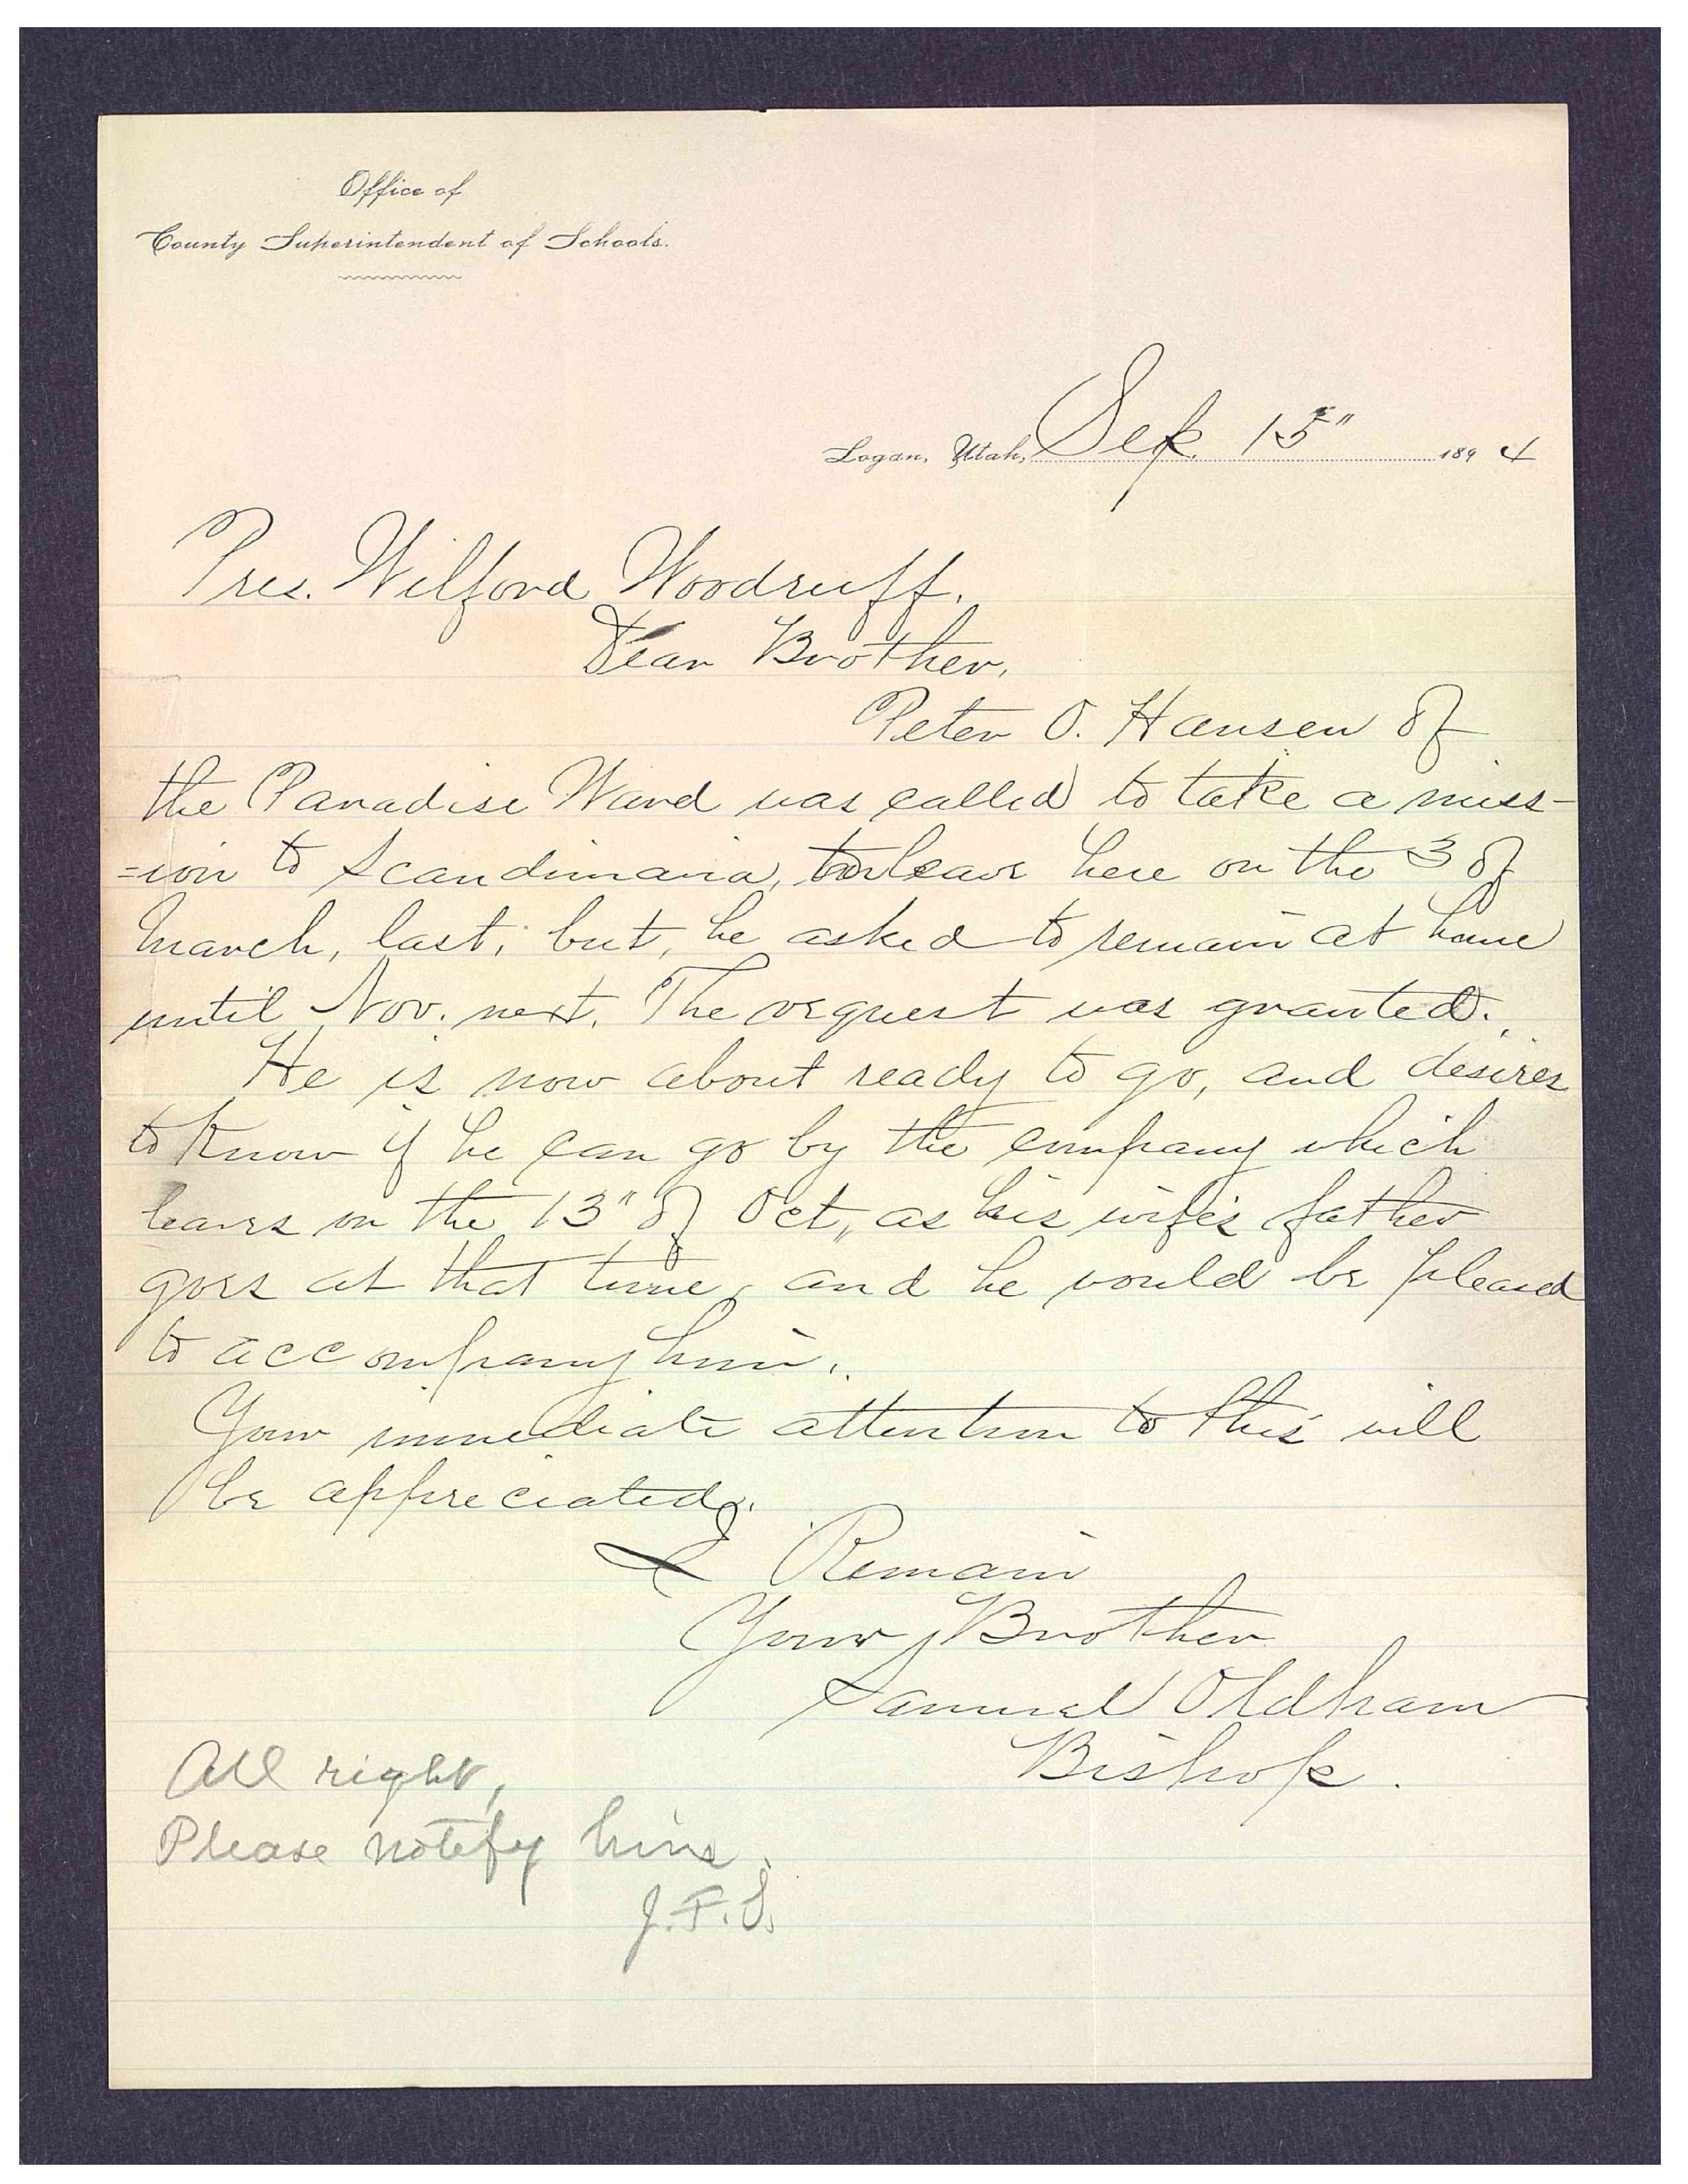 Office of
County Superintendent of Schools.
Logan, Utah, Sep. 15" 1894
Pres. Wilford Woodruff.
Dear Brother,
Peter O. Hansen of
the Paradise Ward was called to take a miss-
=ion to Scandinavia, to leave here on the 3 of
March, last, but, he asked to remain at home
until Nov. next. The request was granted.
He is now about ready to go, and desires
to know if he can go by the company which
leaves on the 13" of Oct, as his wife's father
goes at that time, and he would be pleased
to accompany him.
Your immediate attention to this will
be appreciated.
I Remain
Your Brother
Samuel Oldham
Bishop.
All right,
Please notify him.
J.F.S.